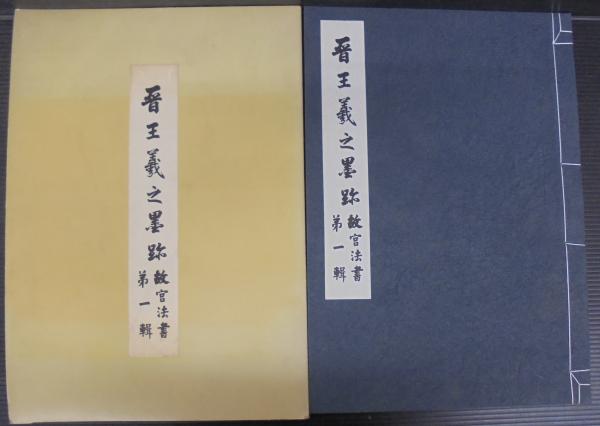 晉王羲之墨跡
故宮法書
第一輯
晉王羲之墨跡
故宮法書
第一輯